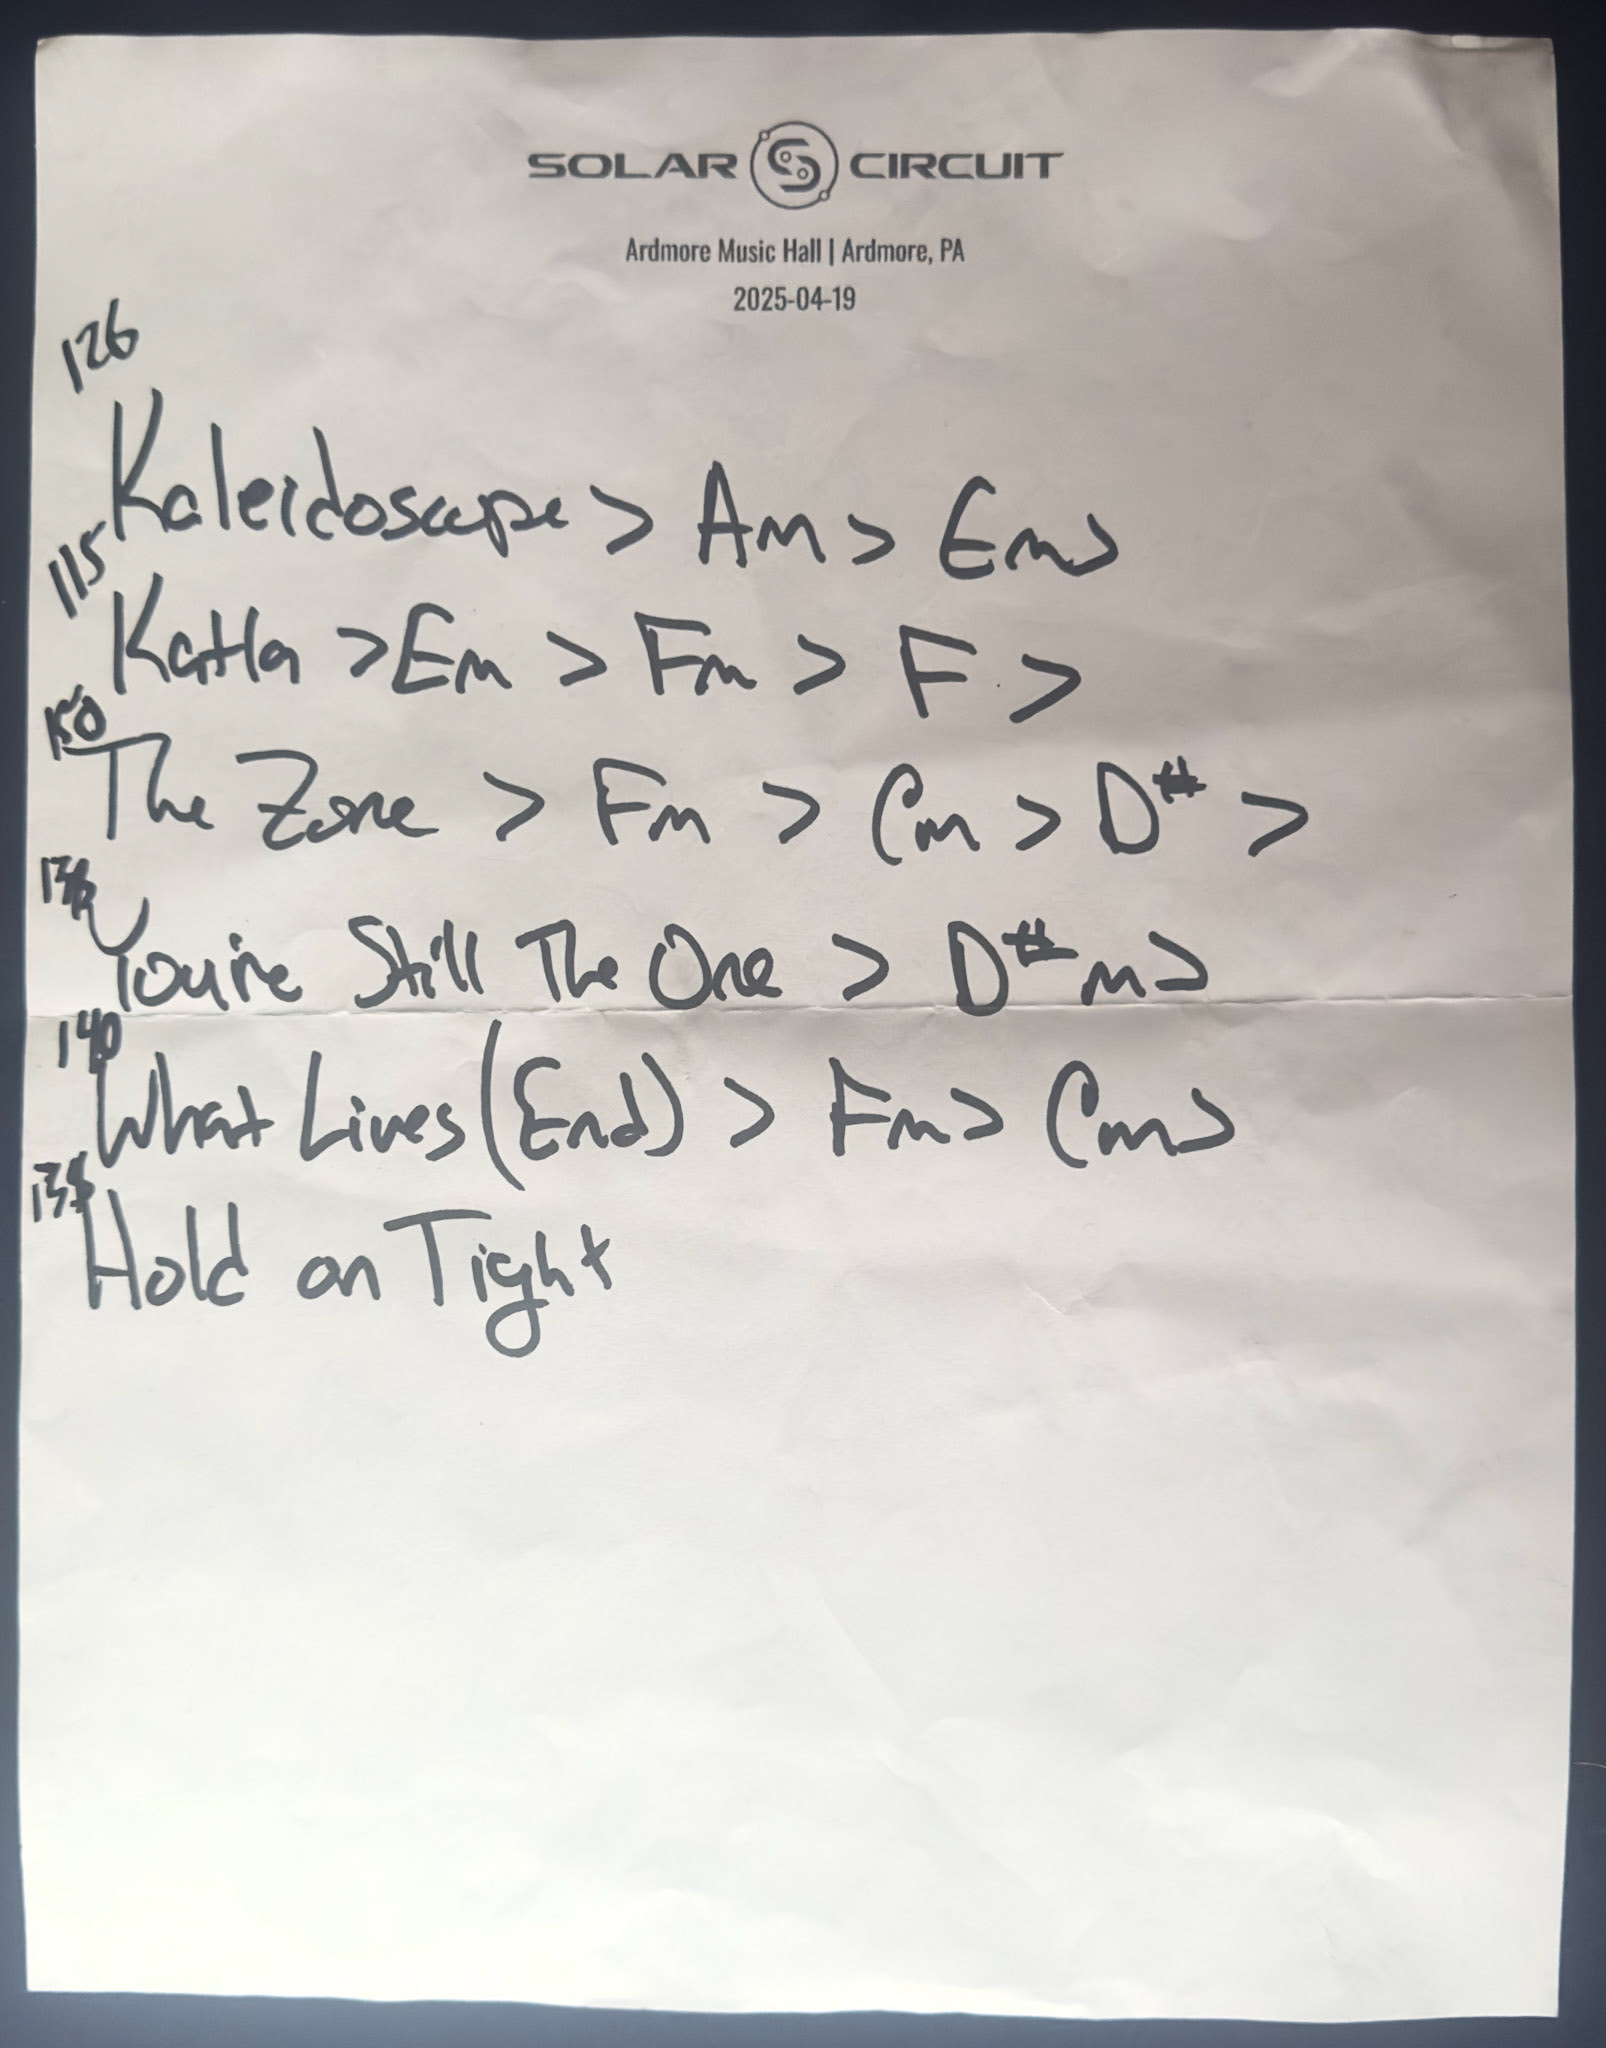 SOLAR CIRCUIT
Ardmore Music Hall | Ardmore, PA
2025-04-19
126
Kaleidoscope > Am > Em>
115
Katla > Em > Fm > F >
150
The Zone > Fm > Cm > D# >
You're Still The One > D#m>
140
What Lives (End) > Fm> Cm>
Hold on Tight